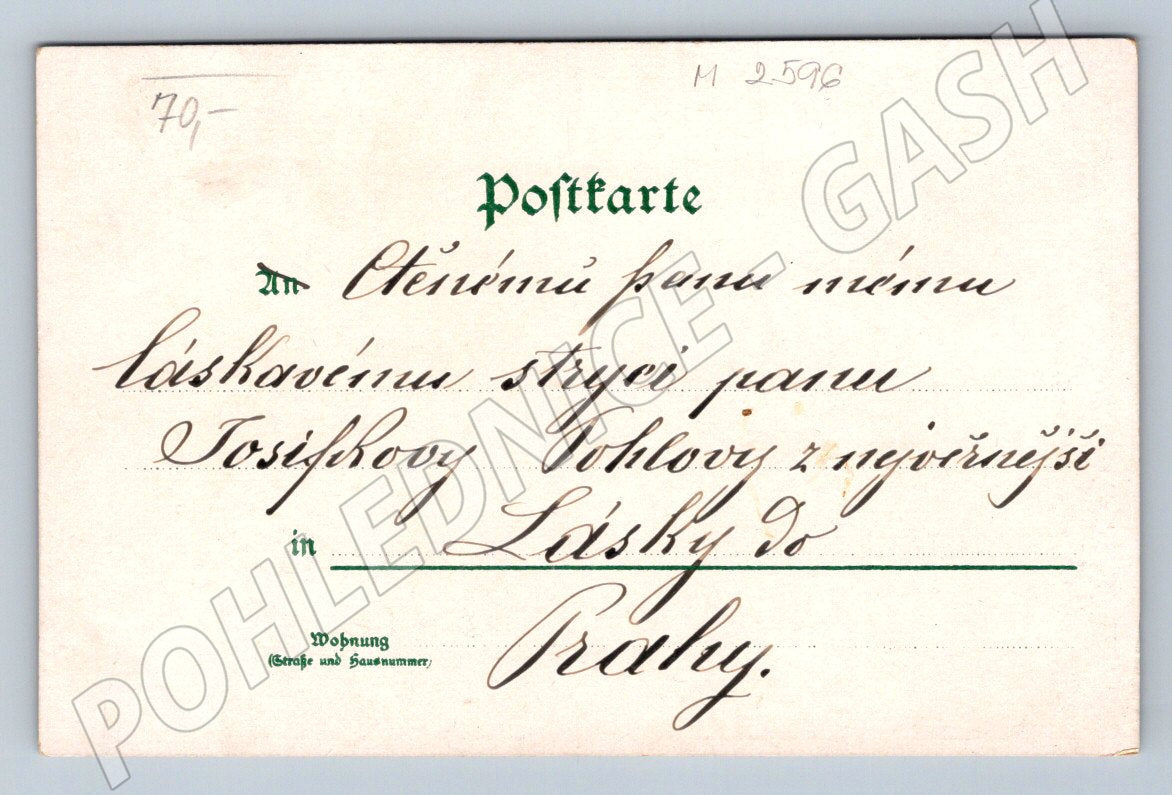 70,-
M 2596
Postkarte
An Ctěnému panu mému
láskavému strýci panu
Josifkovy Pohlovy z nejvěrnější
in Lásky do
Wohnung
(Straße und Hausnummer)
Prahy.
POHLEDNICE - GASH